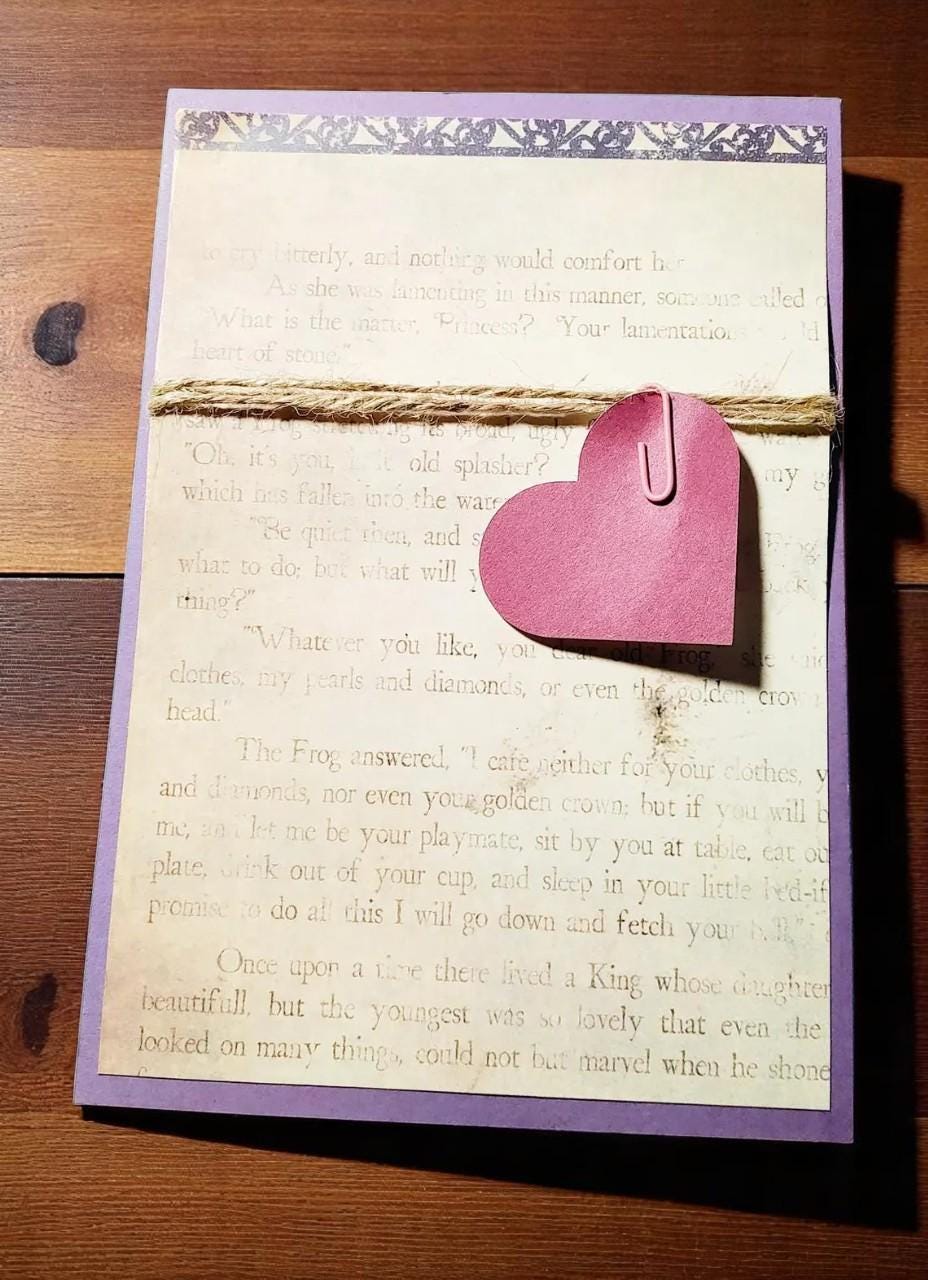 to cry bitterly, and nothing would comfort her
As she was lamenting in this manner, someone called
"What is the matter, Princess? Your lamentations
heart of stone."
saw a Frog stretching its broad, ugly
"Oh, it's you, is it old splasher? my
which has fallen into the water
"Be quiet then, and Frog,
what to do; but what will back
thing?"
"Whatever you like, you dear old Frog," she said
clothes, my pearls and diamonds, or even the golden crown
head."
The Frog answered, "I care neither for your clothes,
and diamonds, nor even your golden crown; but if you will
me, and let me be your playmate, sit by you at table, eat
plate, drink out of your cup, and sleep in your little bed-if
promise to do all this I will go down and fetch your ball."
Once upon a time there lived a King whose daughter
beautifull, but the youngest was so lovely that even the
looked on many things, could not but marvel when he shone